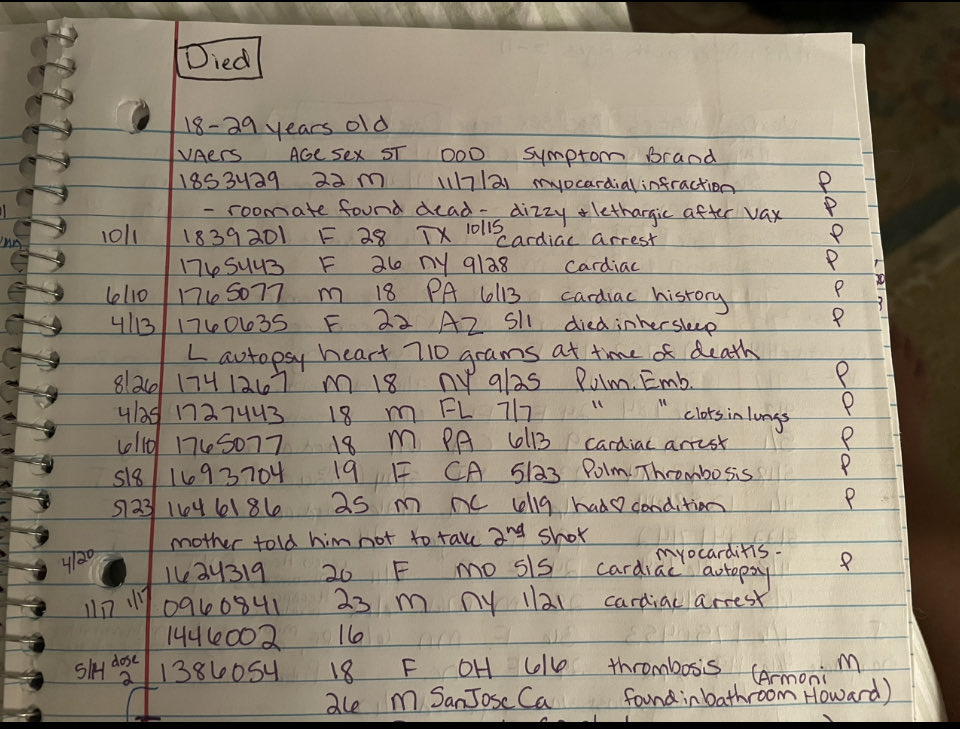 Died
18-29 years old
VAers AGE Sex ST DOD Symptom Brand
1853429 22 M 11/7/21 myocardial infraction P
- roomate found dead - dizzy + lethargic after vax P
10/1 1839201 F 28 TX 10/15 cardiac arrest P
1765443 F 26 NY 9/28 cardiac P
6/10 1765077 M 18 PA 6/13 cardiac history P
4/13 1760635 F 22 AZ 5/1 died in her sleep P
L autopsy heart 710 grams at time of death
8/26 1741267 M 18 NY 9/25 Pulm. Emb. P
4/25 1727443 18 M FL 7/7 " " clots in lungs P
6/10 1765077 18 M PA 6/13 cardiac arrest P
5/8 1693704 19 F CA 5/23 Pulm. Thrombosis P
5/23 1646186 25 M NC 6/19 had ♡ condition P
mother told him not to take 2nd shot
4/20 1624319 20 F MO 5/5 myocarditis - cardiac autopsy P
1/17 1/17 0960841 23 M NY 1/21 cardiac arrest
1446002 16
5/14 dose 2 1386054 18 F OH 6/6 thrombosis M
26 M San Jose Ca found in bathroom (Armoni Howard)